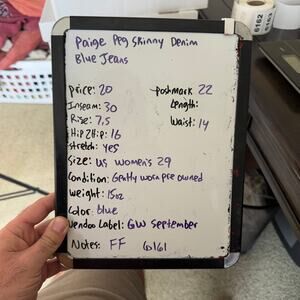 Paige Peg Skinny Denim
Blue Jeans
Price: 20
Poshmark 22
Inseam: 30
Length:
Rise: 7.5
Waist: 14
Hip 2 Hip: 16
Stretch: yes
Size: US Women's 29
Condition: Gently worn pre owned
Weight: 15oz
Color: Blue
Vendoo Label: GW September
Notes: FF 6161
6162